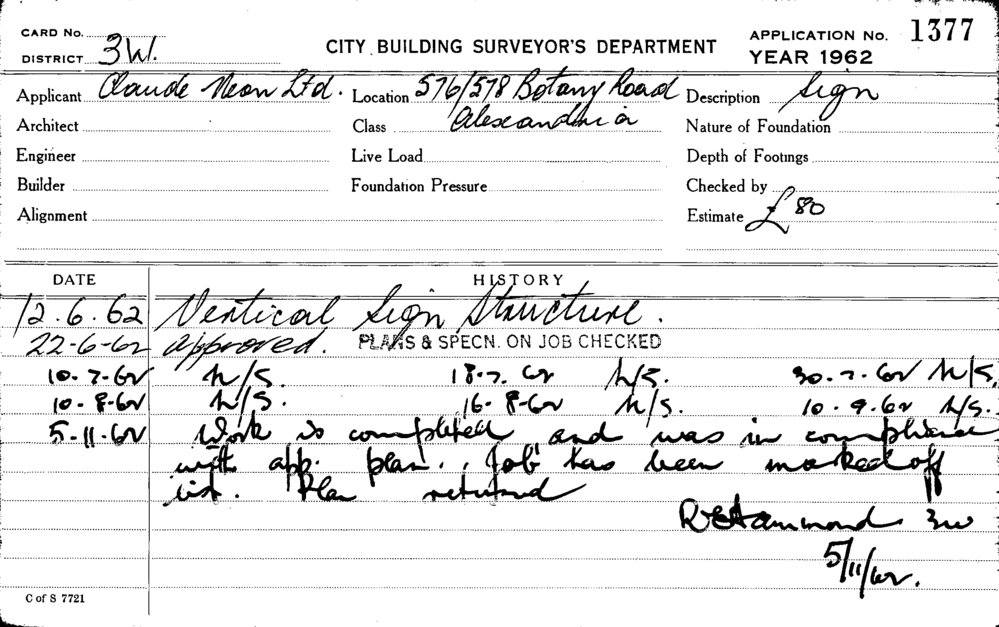 CARD No.
DISTRICT 3W.
CITY BUILDING SURVEYOR'S DEPARTMENT
APPLICATION No. 1377
YEAR 1962
Applicant Claude Neon Ltd. Location 576/578 Botany Road Description Sign
Architect Class Alexandria Nature of Foundation
Engineer Live Load Depth of Footings
Builder Foundation Pressure Checked by
Alignment Estimate £80
DATE HISTORY
12.6.62 Vertical Sign Structure.
22-6-62 approved. PLANS & SPECN. ON JOB CHECKED
10-7-62 N/S. 18-7. 62 N/S. 30-7-62 N/S.
10-8-62 N/S. 16-8-62 N/S. 10-9-62 N/S.
5-11-62 Work is completed and was in compliance
with app. plan. Job has been marked off
list. Plan returned
R Hammond 3W
5/11/62.
C of S 7721